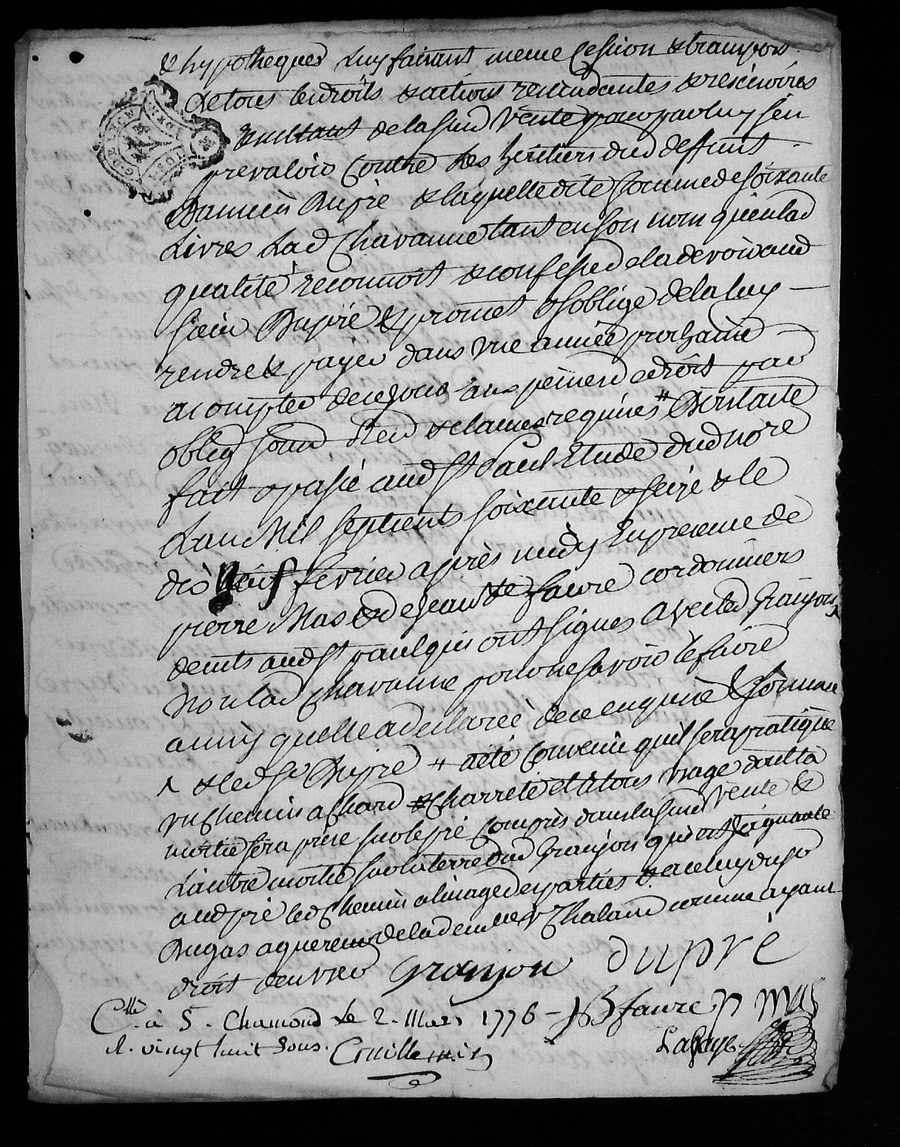 & hypotheques luy faisant meme cession & transport
de tous les droits & actions rescindantes & rescisoires
resultant de la susd vente pour par luy sen
prevaloir contre les heritiers dud deffunt
Damien Dupré & laquelle dite somme de soixante
Livres lad Chavanne tant en son nom quen lad
qualité reconnoit & confesse de la devoir aud
Sieur Dupré & promet & soblige de la luy
rendre & payer dans une année prochaine
a compter de ce jour aux peines de droit par
oblig soum Ren & clauses requises Dont acte
fait & passé aud St Paul Etude dud nore
Lan Mil sept cents soixante & seize & le
dix neuf fevrier après midy En presence de
pierre Mas & de Jean Bte favre cordonniers
dud St paul qui ont signés avec led Granjon
Non lad Chavanne pour ne savoir le faire
ainsy quelle a declarée de ce enquise & sommée
& led Sr Dupré a été convenu quil sera pratiqué
un chemin a chard & charrette et a tous usage dont la
moitié sera prise sur le pré compris dans la susd vente &
Lautre moitié sur la terre dud Granjon qui est
aud pré led chemin a lusage des parties & a celuy du Sr
Dugas aquereur de la demlle Chaland comme ayant
droit den user Granjon dupré
JB favre P mas
Cllé à St Chamond Le 2. Mars 1776
R. vingt huit sous.